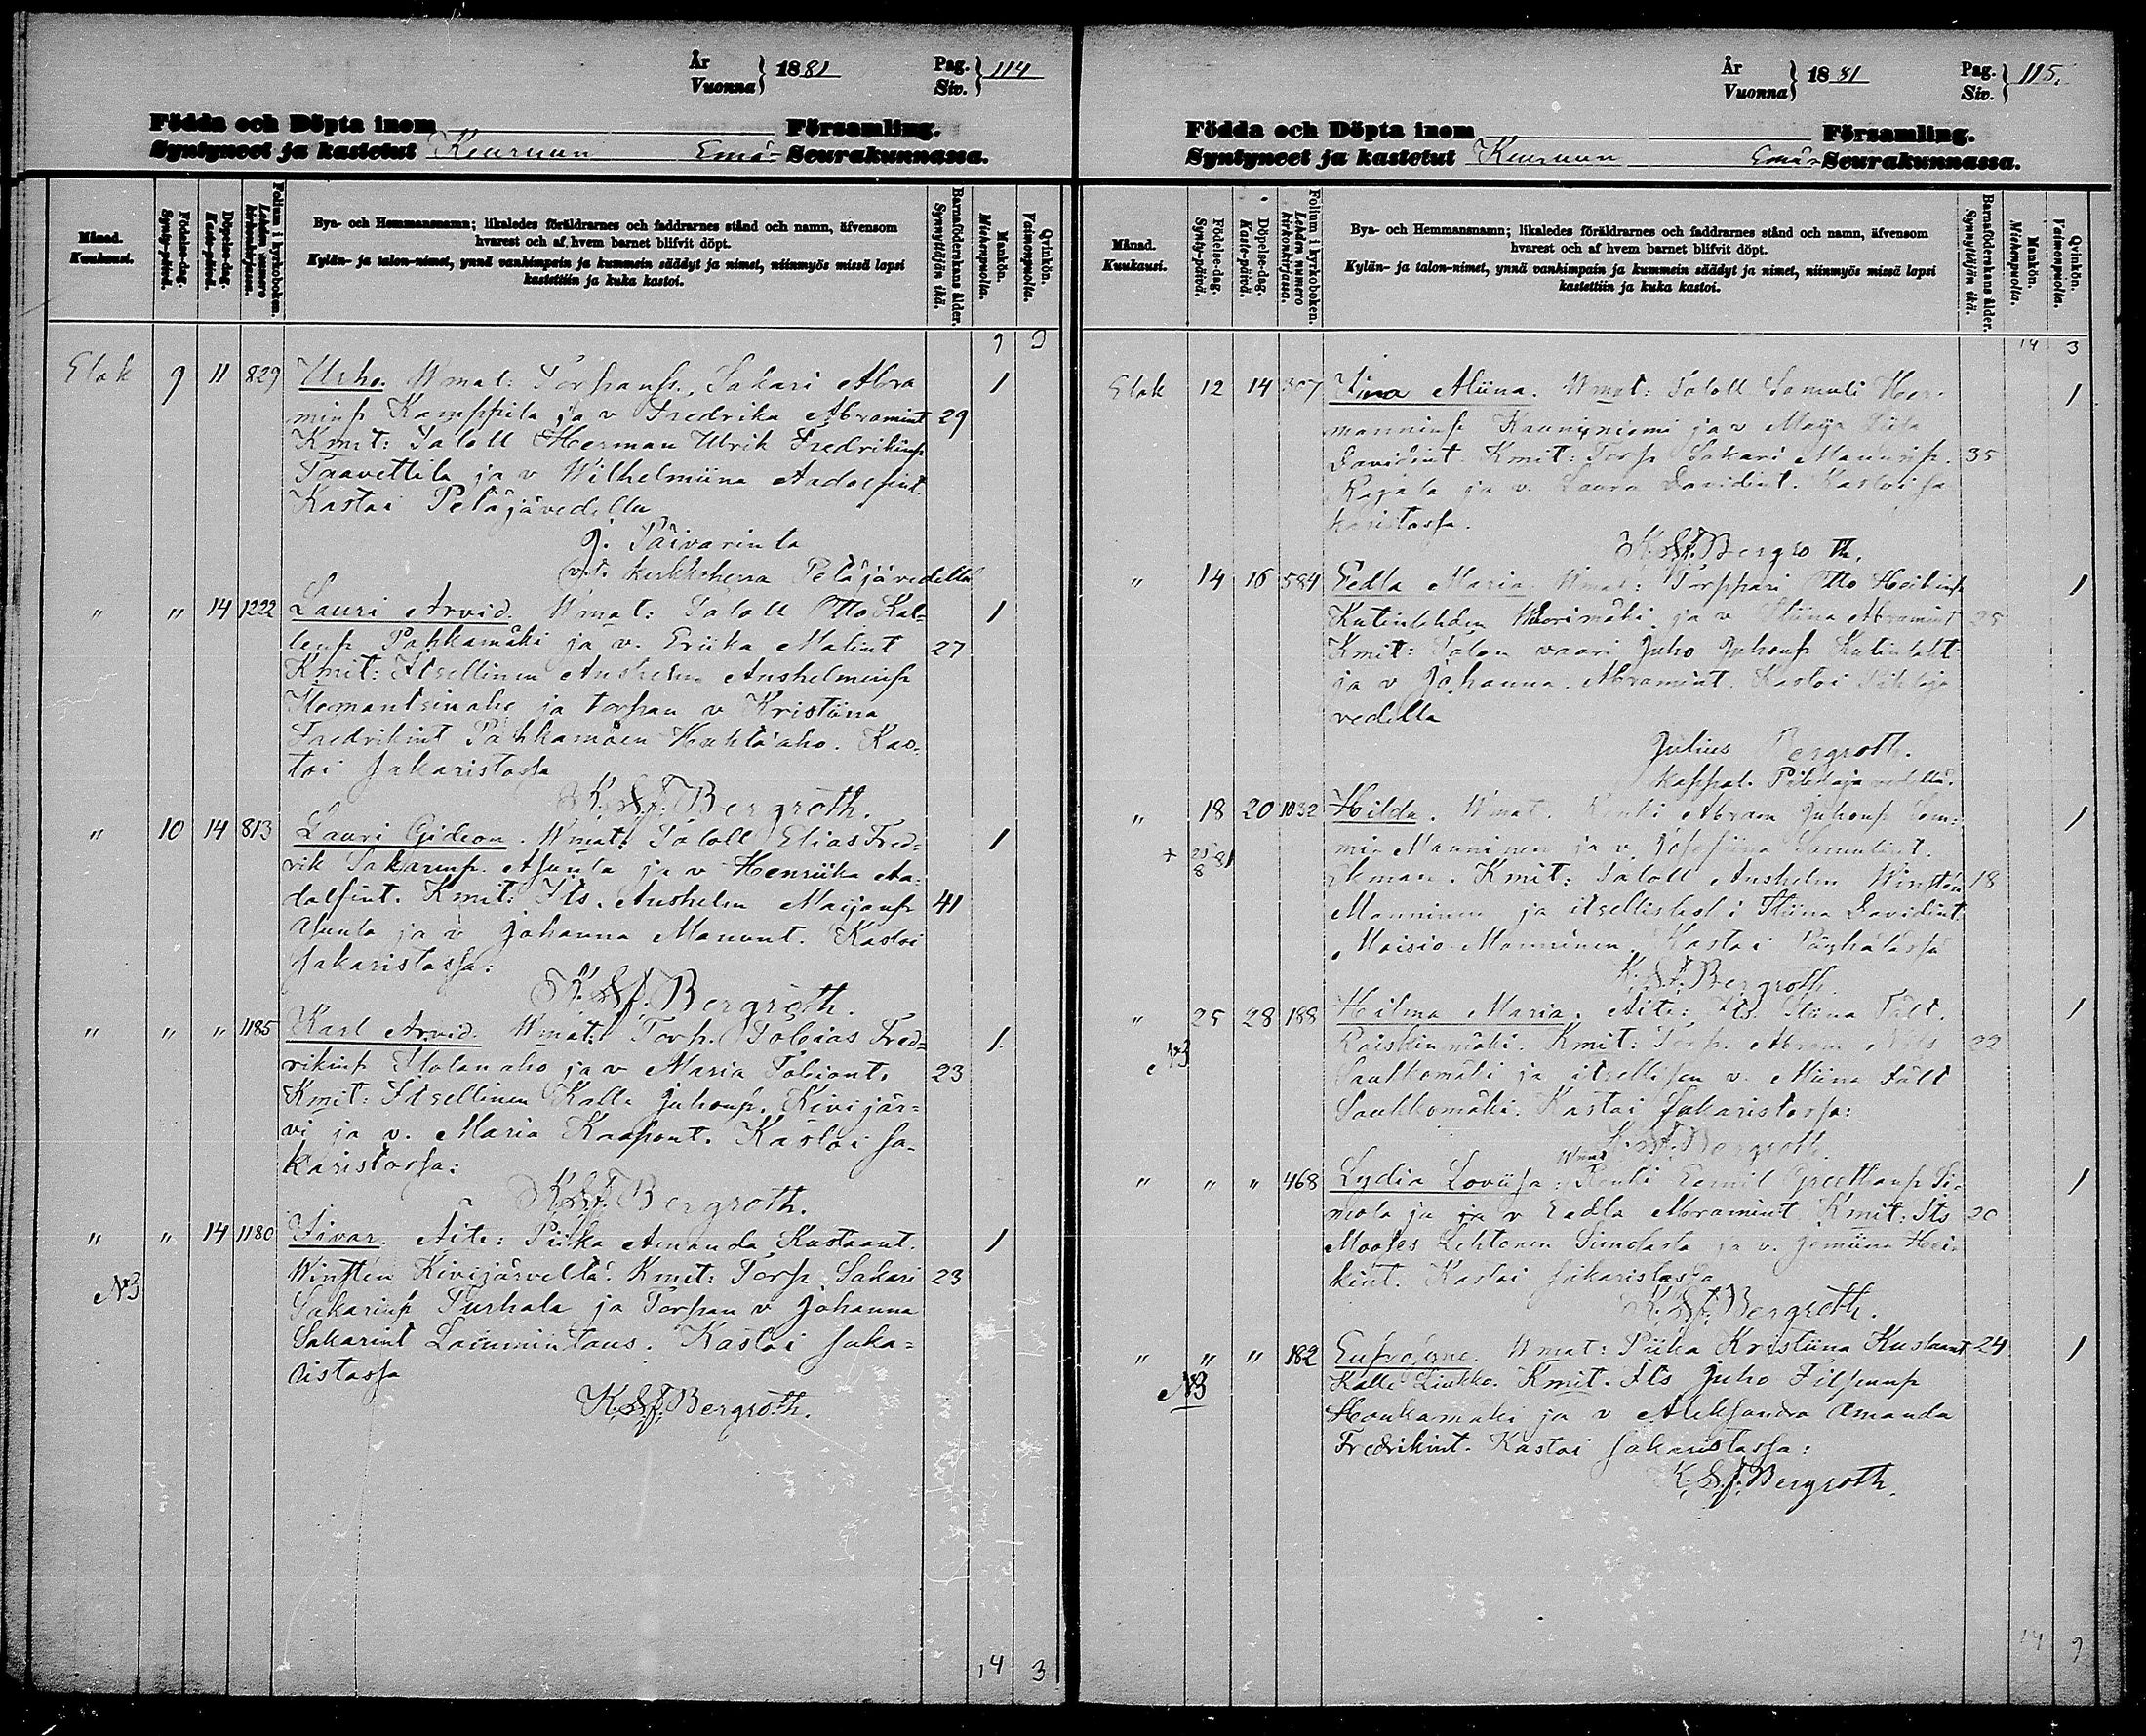 År
Vuonna } 1881 Pag.
Siv. } 114
Födda och Döpta inom Församling.
Syntyneet ja kastetut Keuruun Emä- Seurakunnassa.
Månad.
Kuukausi.
Födelse-dag.
Synty-päivä.
Döpelse-dag.
Kaste-päivä.
Folium i kyrkoboken.
Lehden numero
kirkonkirjassa.
Bya- och Hemmansnamn; likaledes föräldrarnes och faddrarnes stånd och namn, äfvensom
hvarest och af hvem barnet blifvit döpt.
Kylän- ja talon-nimet, ynnä vanhimpain ja kummein säädyt ja nimet, niinmyös missä lapsi
kastettiin ja kuka kastoi.
Barnaföderskans ålder.
Synnyttäjän ikä.
Mankön.
Miehenpuolia.
Qvinkön.
Vaimonpuolia.
9 3
Elok 9 11 829 Urho. Wmat: Torpanp. Sakari Abra 1
minp Kamppila ja v Fredrika Abramint 29
Kmit: Taloll Herman Ulrik Fredrikinp
Taavettila ja v Wilhelmiina Aadolfint.
Kastoi Petäjävedellä
J. Päivärinta
v.t. kirkkoherra Petäjävedellä
" " 14 1222 Lauri Arvid. Wmat: Taloll Otto Kal= 1
lenp Pahkamäki ja v. Eriika Malint 27
Kmit: Itsellinen Anshelm Anshelminp
ja torpan v Kristiina
Fredrikint Pahkamäen Huhta'aho. Kas=
toi sakaristossa
K. S. J. Bergroth.
" 10 14 813 Lauri Gideon. Wmat: Taloll Elias Fred= 1
rik Sakarinp. Asunta ja v Henriika Aa=
dolfint. Kmit: Its. Anshelm Maijanp 41
Asunta ja v Johanna Manunt. Kastoi
sakaristossa:
K. S. J. Bergroth.
" " " 1185 Karl Arvid. Wmat: Torp. Tobias Fred= 1.
rikinp aho ja v Maria Tobiant. 23
Kmit: Itsellinen Kalle Juhonp. Kivijär=
vi ja v. Maria Kaapont. Kastoi sa=
karistossa:
K. S. J. Bergroth.
" " 14 1180 Iivar. Äiti: Piika Amanda Kustaant. 1
Winsten Kivijärveltä. Kmit: Torp Sakari 23
N3
Sakarinp Turhala ja Torpan v Johanna
Sakarint Lamminlaus. Kastoi saka=
ristossa
K. S. J. Bergroth.
14 3
År
Vuonna } 1881 Pag.
Siv. } 115.
Födda och Döpta inom Församling.
Syntyneet ja kastetut Keuruun Emä- Seurakunnassa.
Månad.
Kuukausi.
Födelse-dag.
Synty-päivä.
Döpelse-dag.
Kaste-päivä.
Folium i kyrkoboken.
Lehden numero
kirkonkirjassa.
Bya- och Hemmansnamn; likaledes föräldrarnes och faddrarnes stånd och namn, äfvensom
hvarest och af hvem barnet blifvit döpt.
Kylän- ja talon-nimet, ynnä vanhimpain ja kummein säädyt ja nimet, niinmyös missä lapsi
kastettiin ja kuka kastoi.
Barnaföderskans ålder.
Synnyttäjän ikä.
Mankön.
Miehenpuolia.
Qvinkön.
Vaimonpuolia.
14 3
Elok 12 14 307 Miina. Wmat: Taloll Samuli Her- 1
manninp Kauniniemi ja v Maija Liisa
Davidint. Kmit: Torp Sakari Manunp. 35
Rajala ja v. Laura Davidint. Kastoi sa
karistossa.
K. S. J. Bergroth.
" 14 16 584 Eedla Maria Wmat: Torppari Otto Heikinp 1
Kutinlahden Wuorimäki ja v Miina Abramint 25
Kmit: Talon vaari Juho Juhonp Kutinlaht
ja v Johanna Abramint. Kastoi Pihlaja
vedellä
Julius Bergroth.
kappal. Pihlajavedellä.
" 18 20 1032 Hilda. Wmat. Renki Abram Juhonp 1
Manninen ja v. Josefiina Samulint.
+ 25/8 81
Kmit: Taloll Anshelm Winsten 18
Manninen ja Miina Davidint.
Maisio-Manninen. Kastoi Pappilassa
K. S. J. Bergroth.
" 25 28 188 Hilma Maria. Äiti: Its. Miina Fält. 1
Raiskinmäki. Kmit: Torp. Abram 22
N3
Saukkomäki ja itsellisen v. Miina Fält
Saukkomäki. Kastoi sakaristossa:
K. S. J. Bergroth.
" " " 468 Lydia Loviisa: Wmat Renki Eemil Greethanp Si= 1
mola ja ja v Eedla Abramint Kmit: Its 20
Mooses Lehtonen Simolasta ja v. Jemiina Hei=
kint. Kastoi sakaristossa
K. S. J. Bergroth.
" " " 182 Eufrosyne. Wmat: Piika Kristiina Kustaant 24 1
N3
Kalle Liukko. Kmit. Its Juho Filpunp
Honkamäki ja v Aleksandra Amanda
Fredrikint. Kastoi sakaristossa:
K. S. J. Bergroth.
14 9